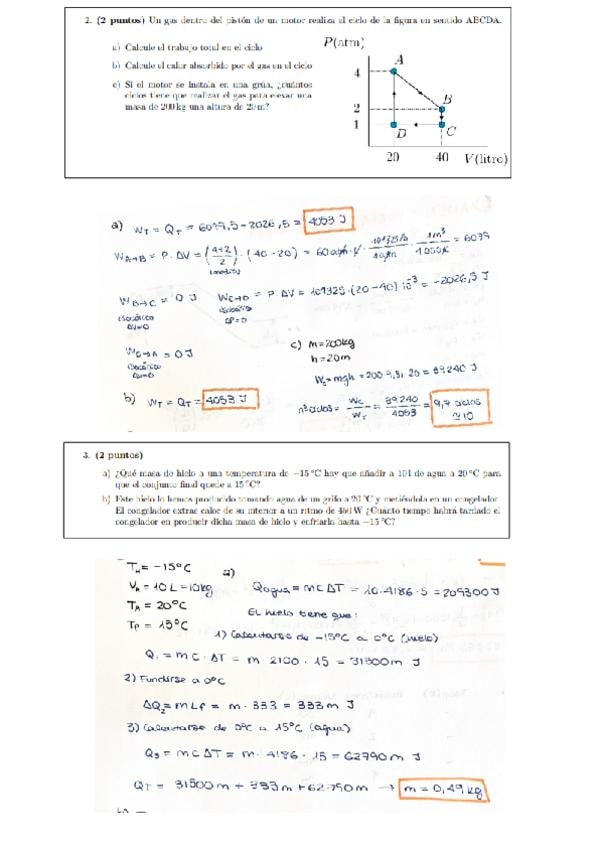 2. (2 puntos) Un gas dentro del pistón de un motor realiza el ciclo de la figura en sentido ABCDA.
a) Calcule el trabajo total en el ciclo
b) Calcule el calor absorbido por el gas en el ciclo
c) Si el motor se instala en una grúa, ¿cuántos
ciclos tiene que realizar el gas para elevar una
masa de 200 kg una altura de 20 m?
P(atm)
A
4
B
2
1
D
C
20
40
V(litro)
a) W_T = Q_T = 6079,5 - 2026,5 = 4053 J
W_A→B = P · ΔV = (4+2/2) · (40 - 20) = 60 atm · l · 101325 Pa/1 atm · 1m³/1000 l = 6079
W_B→C = 0 J
isocórico
ΔV=0
W_C→D = P · ΔV = 101325 · (20 - 40) · 10⁻³ = -2026,5 J
isobárico
ΔP=0
W_D→A = 0 J
isocórico
ΔV=0
c) m=200kg
h=20m
W_c = mgh = 200 · 9,81 · 20 = 39240 J
b) W_T = Q_T = 4053 J
nº ciclos = W_c/W_T = 39.240/4053 = 9,7 ciclos
≃ 10
3. (2 puntos)
a) ¿Qué masa de hielo a una temperatura de −15 °C hay que añadir a 10 l de agua a 20 °C para
que el conjunto final quede a 15 °C?
b) Este hielo lo hemos producido tomando agua de un grifo a 20 °C y metiéndola en un congelador.
El congelador extrae calor de su interior a un ritmo de W ¿Cuánto tiempo habrá tardado el
congelador en producir dicha masa de hielo y enfriarla hasta −15 °C?
T_H = -15°C
V_A = 10 L = 10kg
T_A = 20°C
T_F = 15°C
a)
Q_agua = m C ΔT = 10 · 4186 · 5 = 209300 J
El hielo tiene que:
1) Calentarse de -15°C a 0°C (hielo)
Q_1 = m C · ΔT = m · 2100 · 15 = 31500 m J
2) Fundirse a 0°C
ΔQ_2 = m L_f = m · 333 = 333 m J
3) Calentarse de 0°C a 15°C (agua)
Q_3 = m C ΔT = m · 4186 · 15 = 62790 m J
Q_T = 31500 m + 333 m + 62790 m → m = 0,49 kg